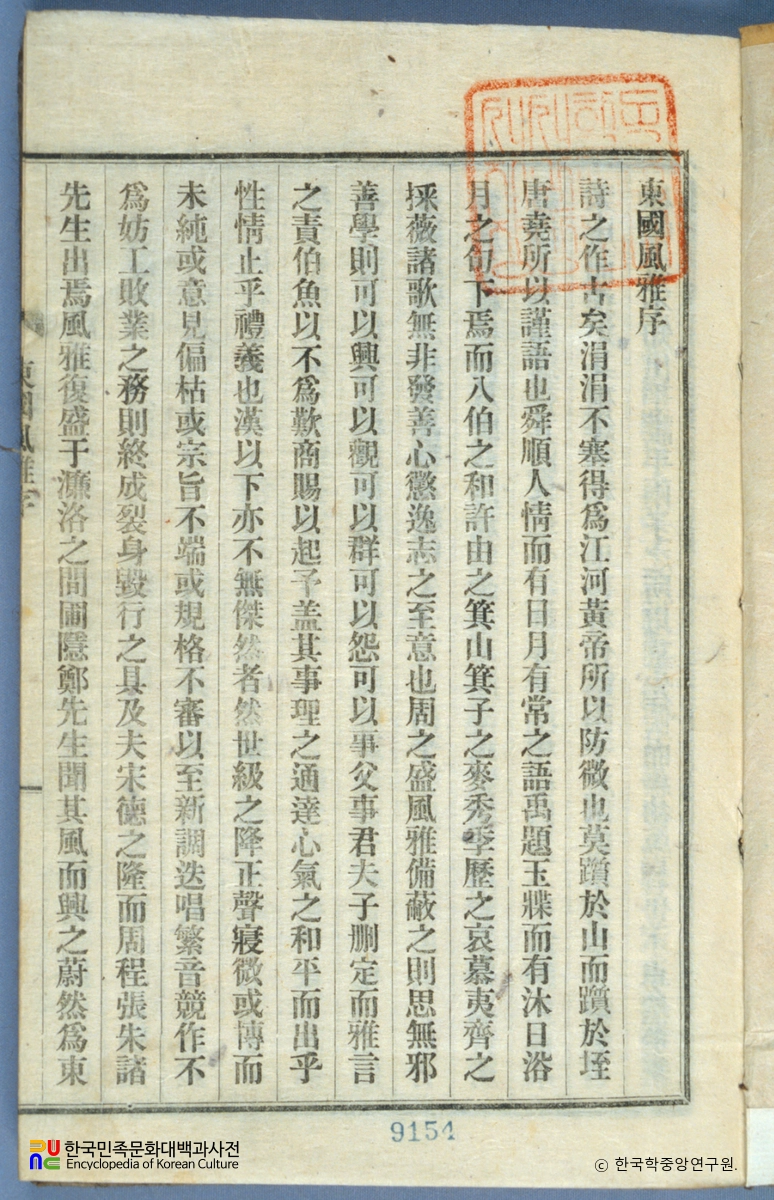 東國風雅序
詩之作古矣涓涓不塞得爲江河黃帝所以防微也莫躓於山而躓於垤
唐堯所以謹語也舜順人情而有日月有常之語禹題玉牒而有沐日浴
月之句下焉而八伯之和許由之箕山箕子之麥秀季歷之哀慕夷齊之
採薇諸歌無非發善心懲逸志之至意也周之盛風雅備蔽之則思無邪
善學則可以興可以觀可以群可以怨可以事父事君夫子刪定而雅言
之責伯魚以不爲歎商賜以起予盖其事理之通達心氣之和平而出乎
性情止乎禮義也漢以下亦不無傑然者然世級之降正聲寢微或博而
未純或意見偏枯或宗旨不端或規格不審以至新調迭唱繁音競作不
爲妨工敗業之務則終成裂身毀行之具及夫宋德之隆而周程張朱諸
先生出焉風雅復盛于濂洛之間圃隱鄭先生聞其風而興之蔚然爲東
東國風雅序
9154
한국민족문화대백과사전
Encyclopedia of Korean Culture
© 한국학중앙연구원.